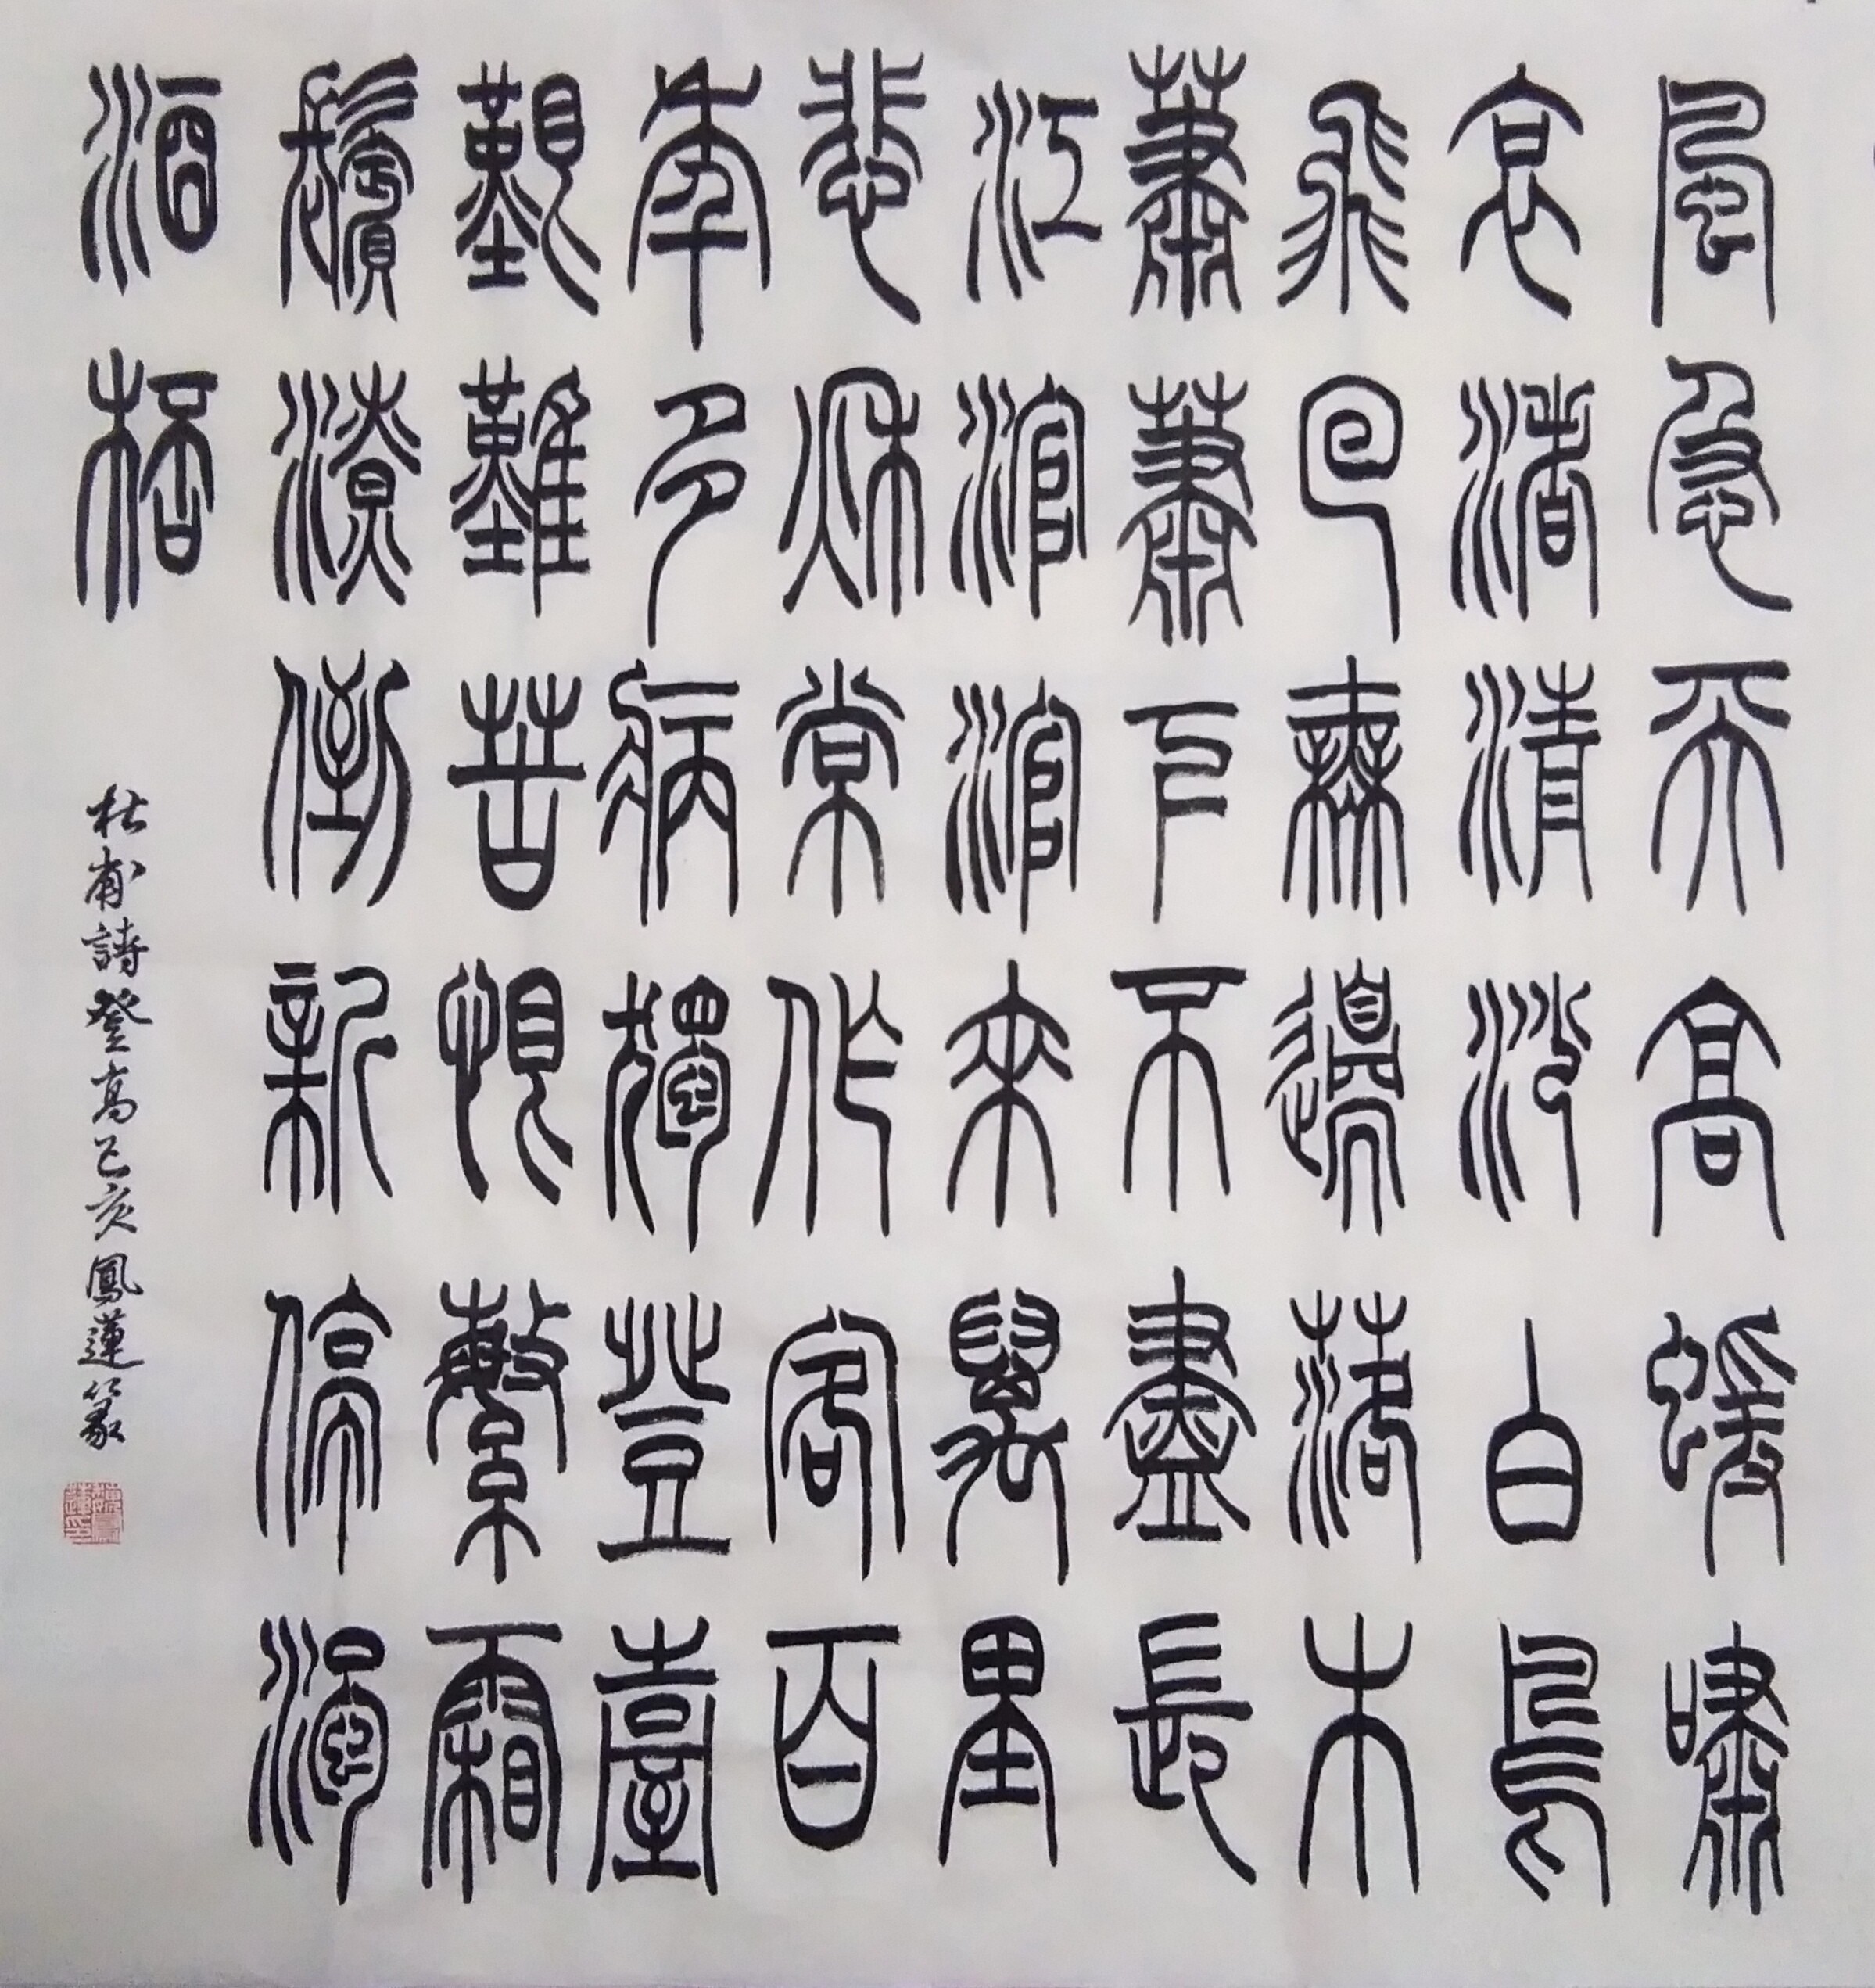 風急天高蝯嘯
哀渚清沙白鳥
飛回無邊落木
蕭蕭下不盡長
江涫涫來萬里
悲秋常作客百
年多病獨登臺
艱難苦恨繁霜
鬢潦倒新停濁
酒桮
杜甫詩登高己亥鳳蓮篆